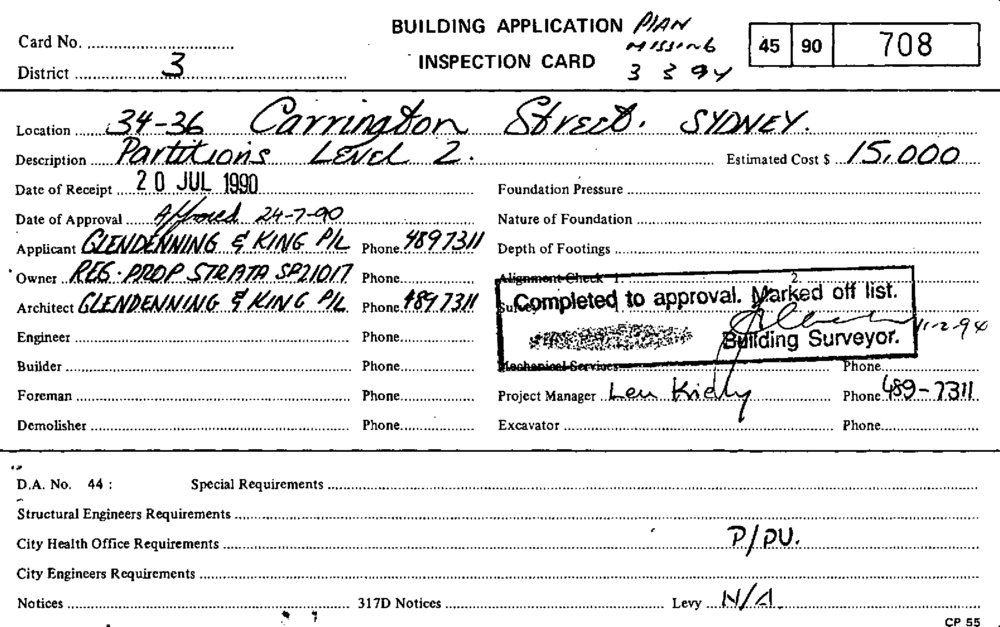 BUILDING APPLICATION PLAN MISSING
INSPECTION CARD 3 3 94
Card No.
District 3
45 90 708
Location 34-36 Carrington Street. SYDNEY.
Description Partitions LEVEL 2. Estimated Cost $ 15,000
Date of Receipt 20 JUL 1990 Foundation Pressure
Date of Approval Approved 24-7-90 Nature of Foundation
Applicant GLENDENNING & KING P/L Phone 489 7311 Depth of Footings
Owner REG. PROP STRATA SP21017 Phone Alignment Check 1 2
Architect GLENDENNING & KING P/L Phone 489 7311
Completed to approval. Marked off list.
11-2-94
Building Surveyor.
Engineer Phone
Builder Phone Mechanical Services Phone
Foreman Phone Project Manager Len Phone 489-7311
Demolisher Phone Excavator Phone
D.A. No. 44 : Special Requirements
Structural Engineers Requirements
City Health Office Requirements P/PU.
City Engineers Requirements
Notices 317D Notices Levy N/A
CP 55